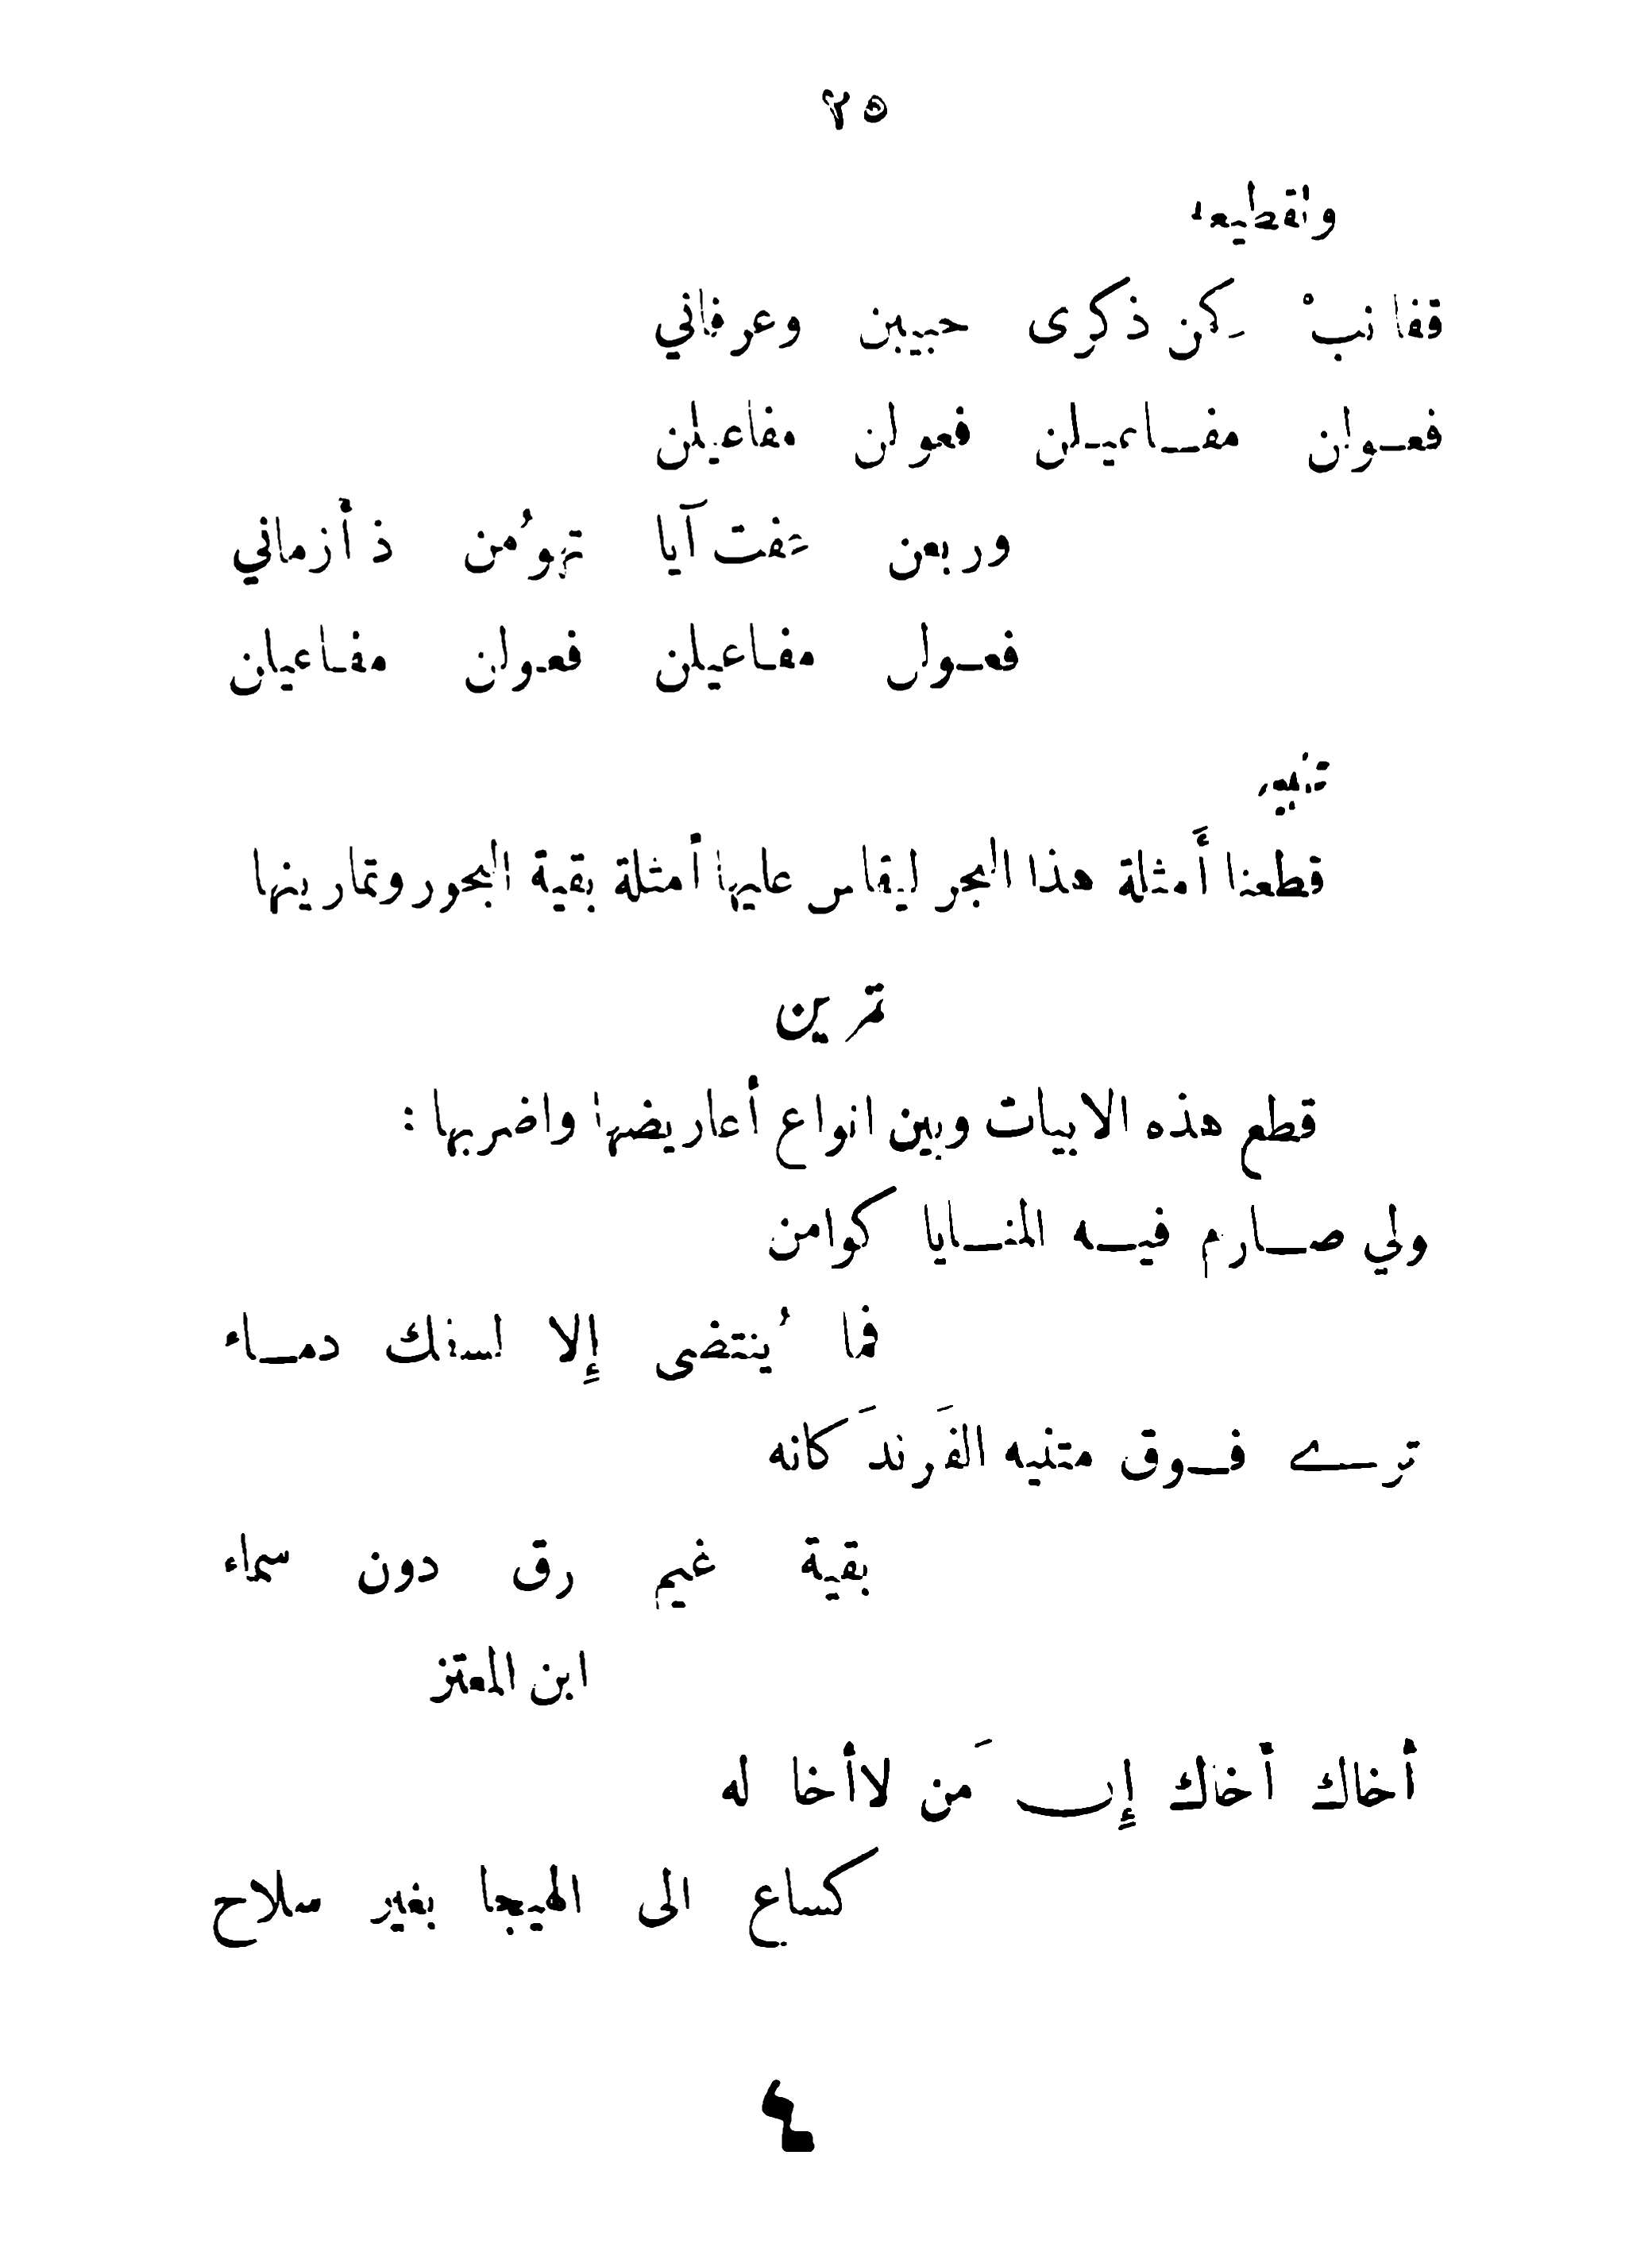 ٢٥
وتقطيعه
قفا نبْ كِمن ذكرى حبيبن وعرفاني
فعـولن مفـاعيـلن فعولن مفاعيلن
وربعن عَفت آيا تهوُمن ذ أزماني
فعـول مفـاعيلن فعولن مفـاعيلن
تنبيه
قطعنا أَمثلة هذا البحر ليقاس عليها أمثلة بقية البحور وتمارينها
تمرين
قطع هذه الابيات وبين انواع أعاريضها واضربها :
ولي صـارم فيـه المنـايا كوامن
فما يُنتضى إِلا لسفك دمـاء
ترى فـوق متنيه الفَرندَ كانه
بقية غيم رق دون سماء
ابن المعتز
أخاك أخاك إِن مَن لاأخا له
كساع الى الهيجا بغير سلاح
٤